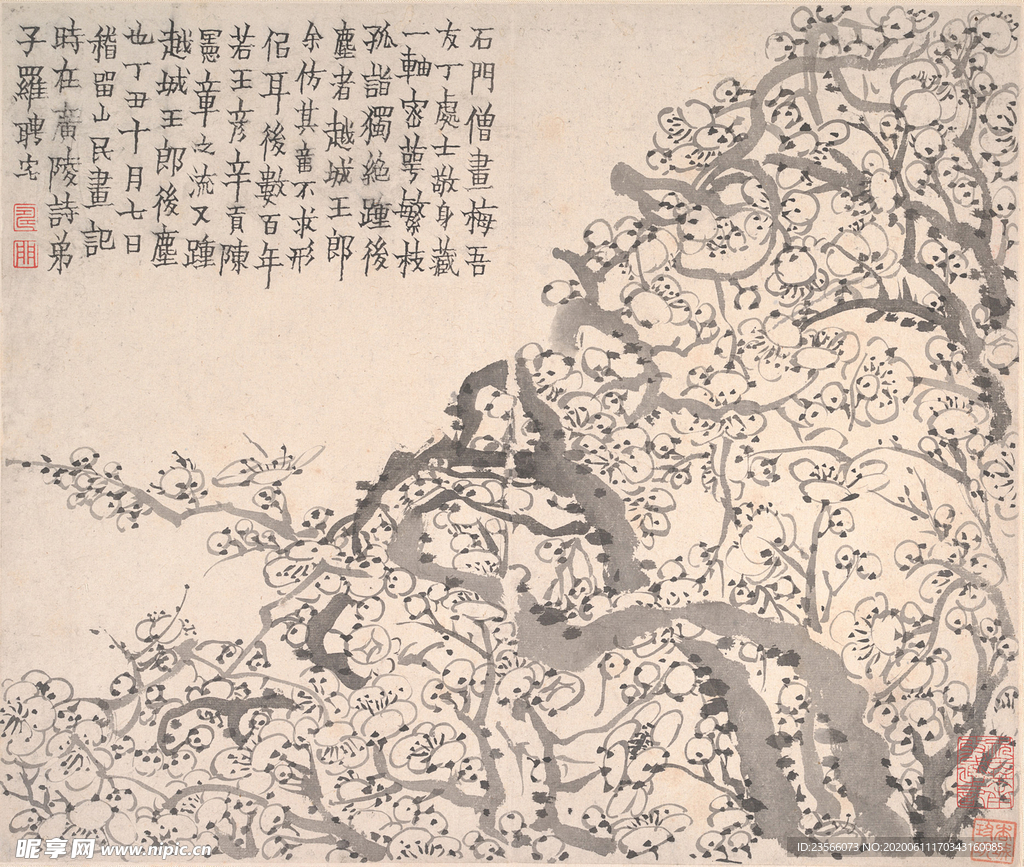 石門僧畫梅吾
友丁處士敬身藏
一軸密萼繁枝
孤詣獨絶踵後
塵者越城王郎
余仿其意不求形
佀耳後數百年
若王彥辛貢陳
憲章之流又踵
越城王郎後塵
也丁丑十月七日
稽留山民畫記
時在廣陵詩弟
子羅聘它
昵享网 www.nipic.cn
ID:23566073 NO:20200611170343160085